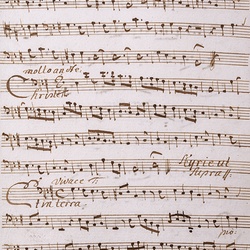 molto and te.
Christe
Kyrie ut
supra
Vivace
Et in terra
pio.